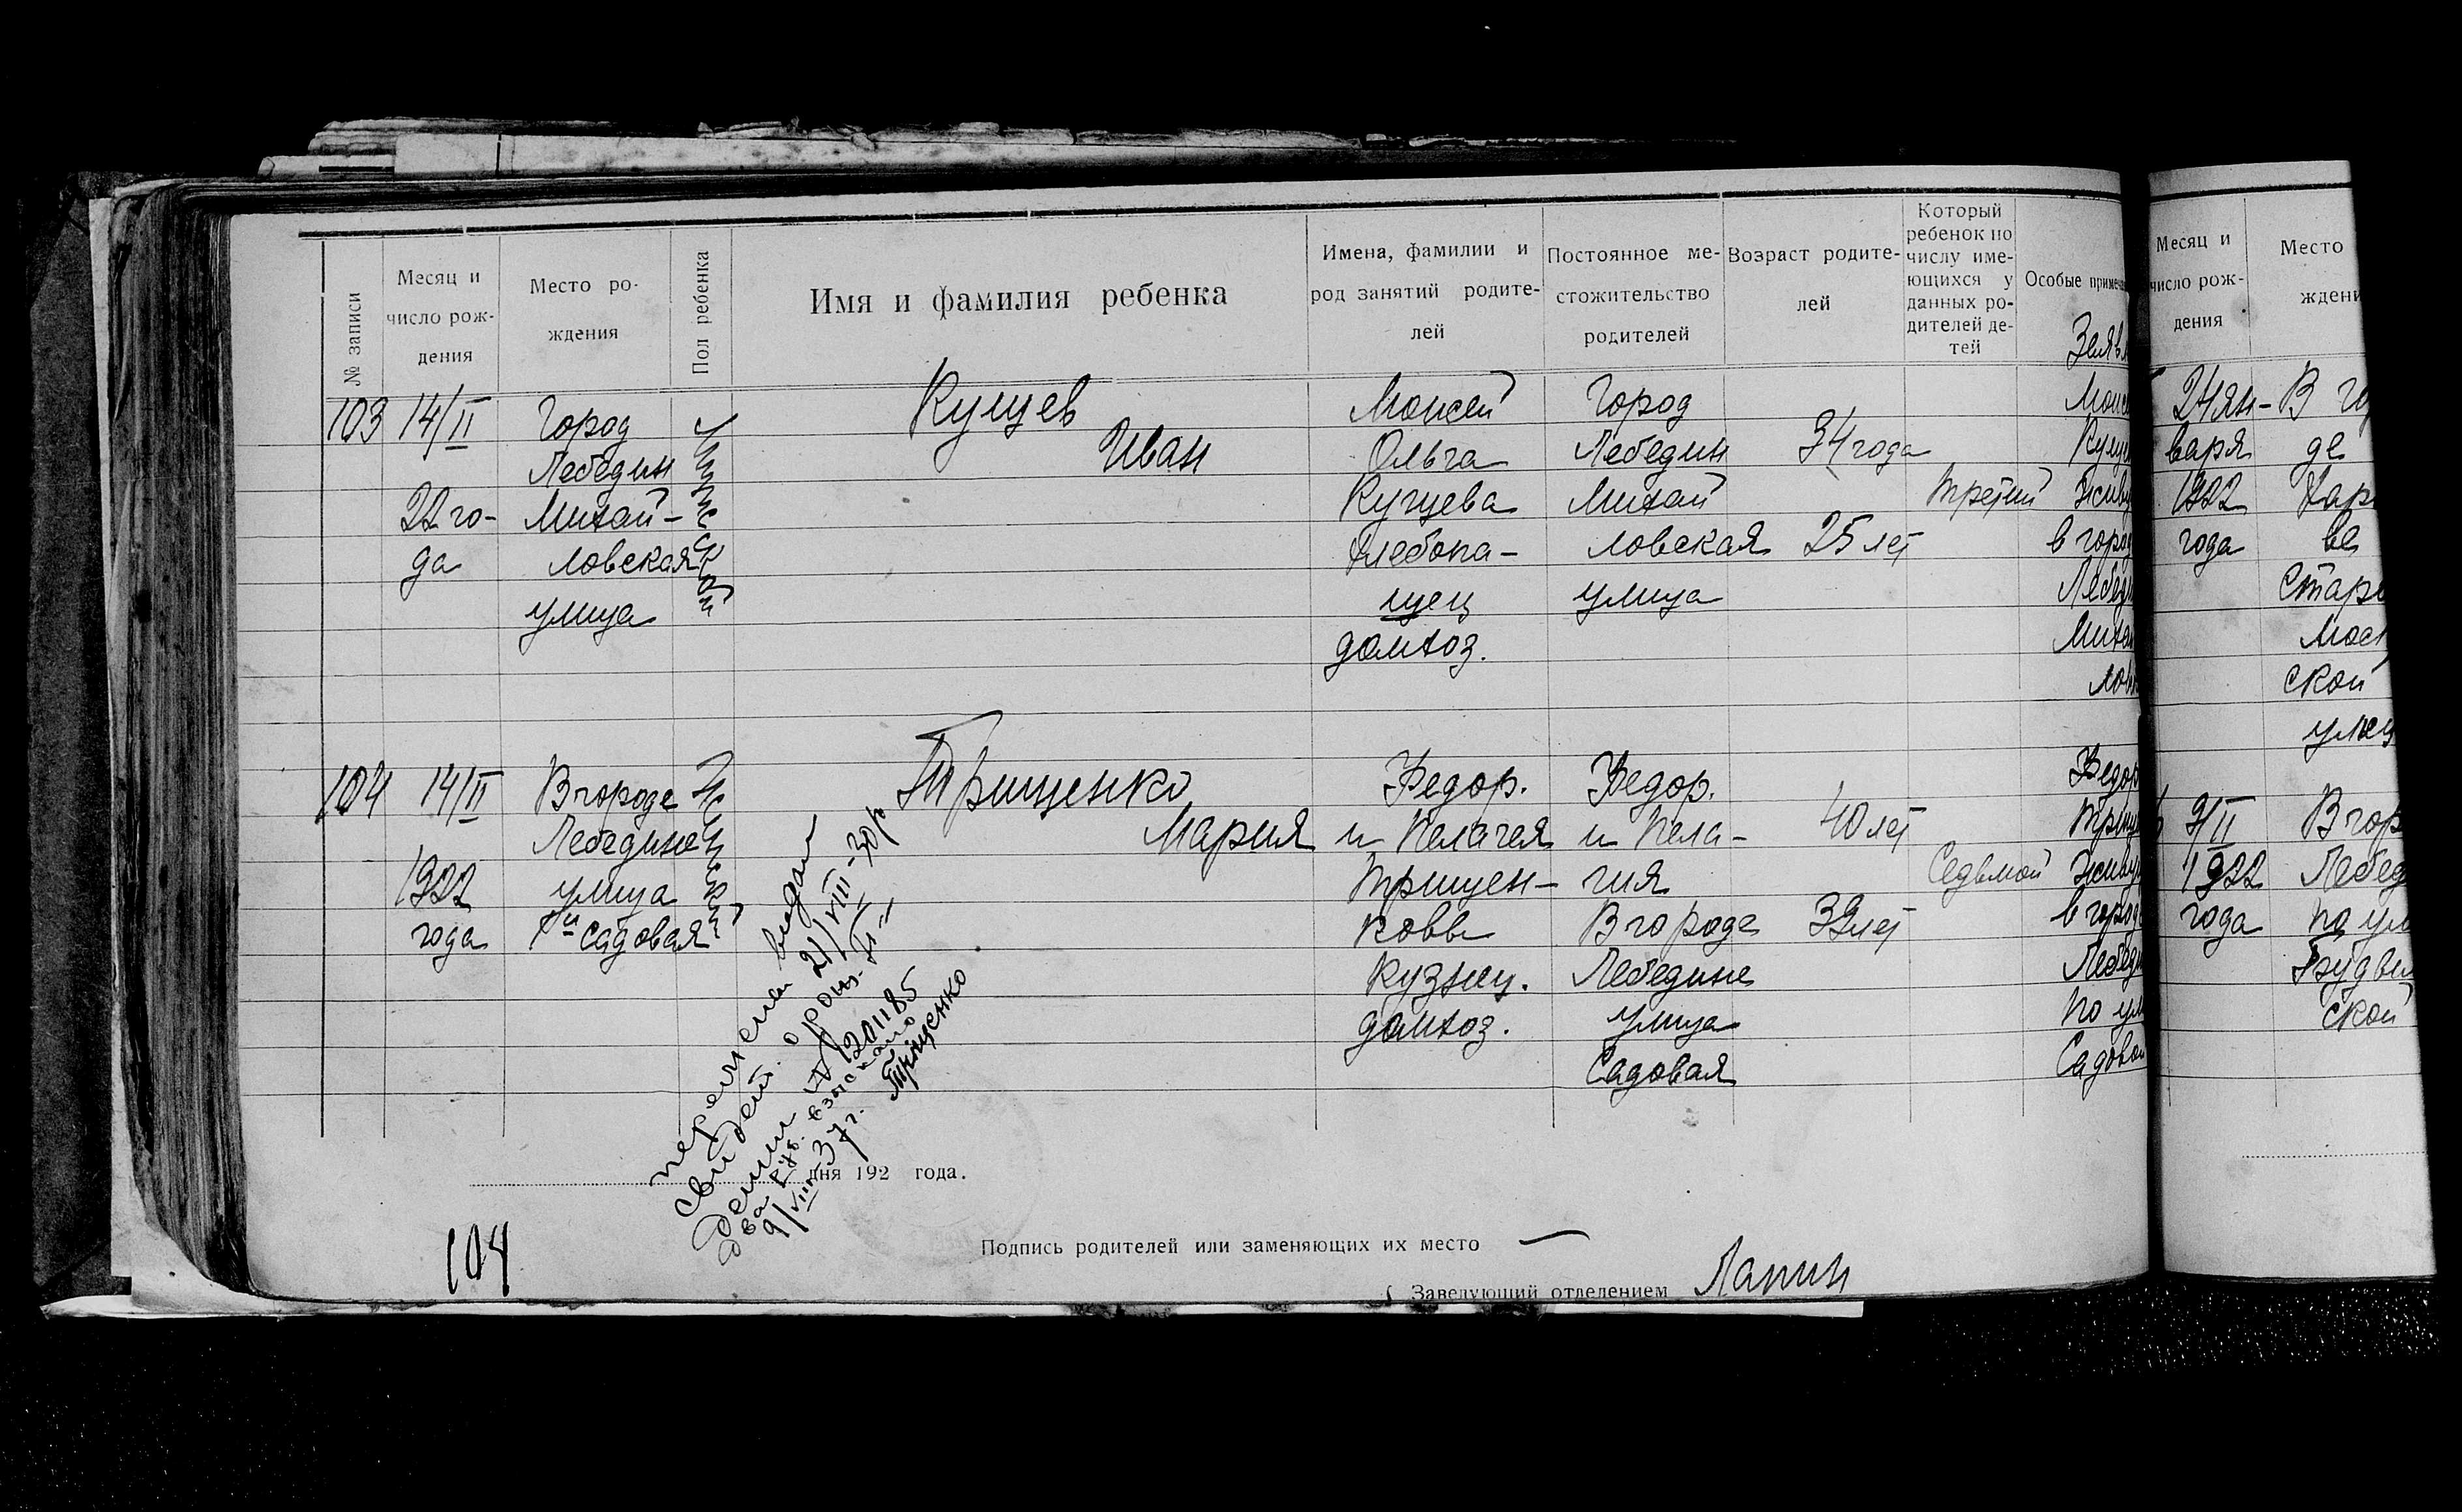 № записи
Месяц и число рождения
Место рождения
Пол ребенка
Имя и фамилия ребенка
Имена, фамилии и род занятий родителей
Постоянное местожительство родителей
Возраст родителей
Который ребенок по числу имеющихся у данных родителей детей
Особые примеча
103
14/II
22 го-
да
Город
Лебедин
Михай-
ловская
улица
Мужской
Кущев
Иван
Моисей
Ольга
Кущева
хлебопа-
шец
домхоз.
Город
Лебедин
Михай
ловская
улица
34 года
25 лет
третий
Заявл
Моис
Куще
Живу
в город
Лебеди
Михай
лов
104
14/II
1922
года
В городе
Лебедине
улица
1я Садовая
Женский
Трищенко
Мария
Федор.
и Пелагея
Трищен-
ковы
кузнец.
домхоз.
Федор.
и Пела-
гия
В городе
Лебедине
улица
Садовая
40 лет
39 лет
Седьмой
Федор
Трищ
Живу
в город
Лебеди
по ул
Садовой
видан
21/VIII-30р
свидет. о рож-
дении № 1201185
два руб. взыскано
9/VIII 37г. Трищенко
дня 192 года.
104
Подпись родителей или заменяющих их место
Заведующий отделением Лапин
Месяц и
число рож-
дения
Место
ждени
24 ян-
варя
1922
года
В го
де
Хар
ве
Старо
Моск
ской
улиц
9/II
1922
года
В гор
Лебед
по ул
ской